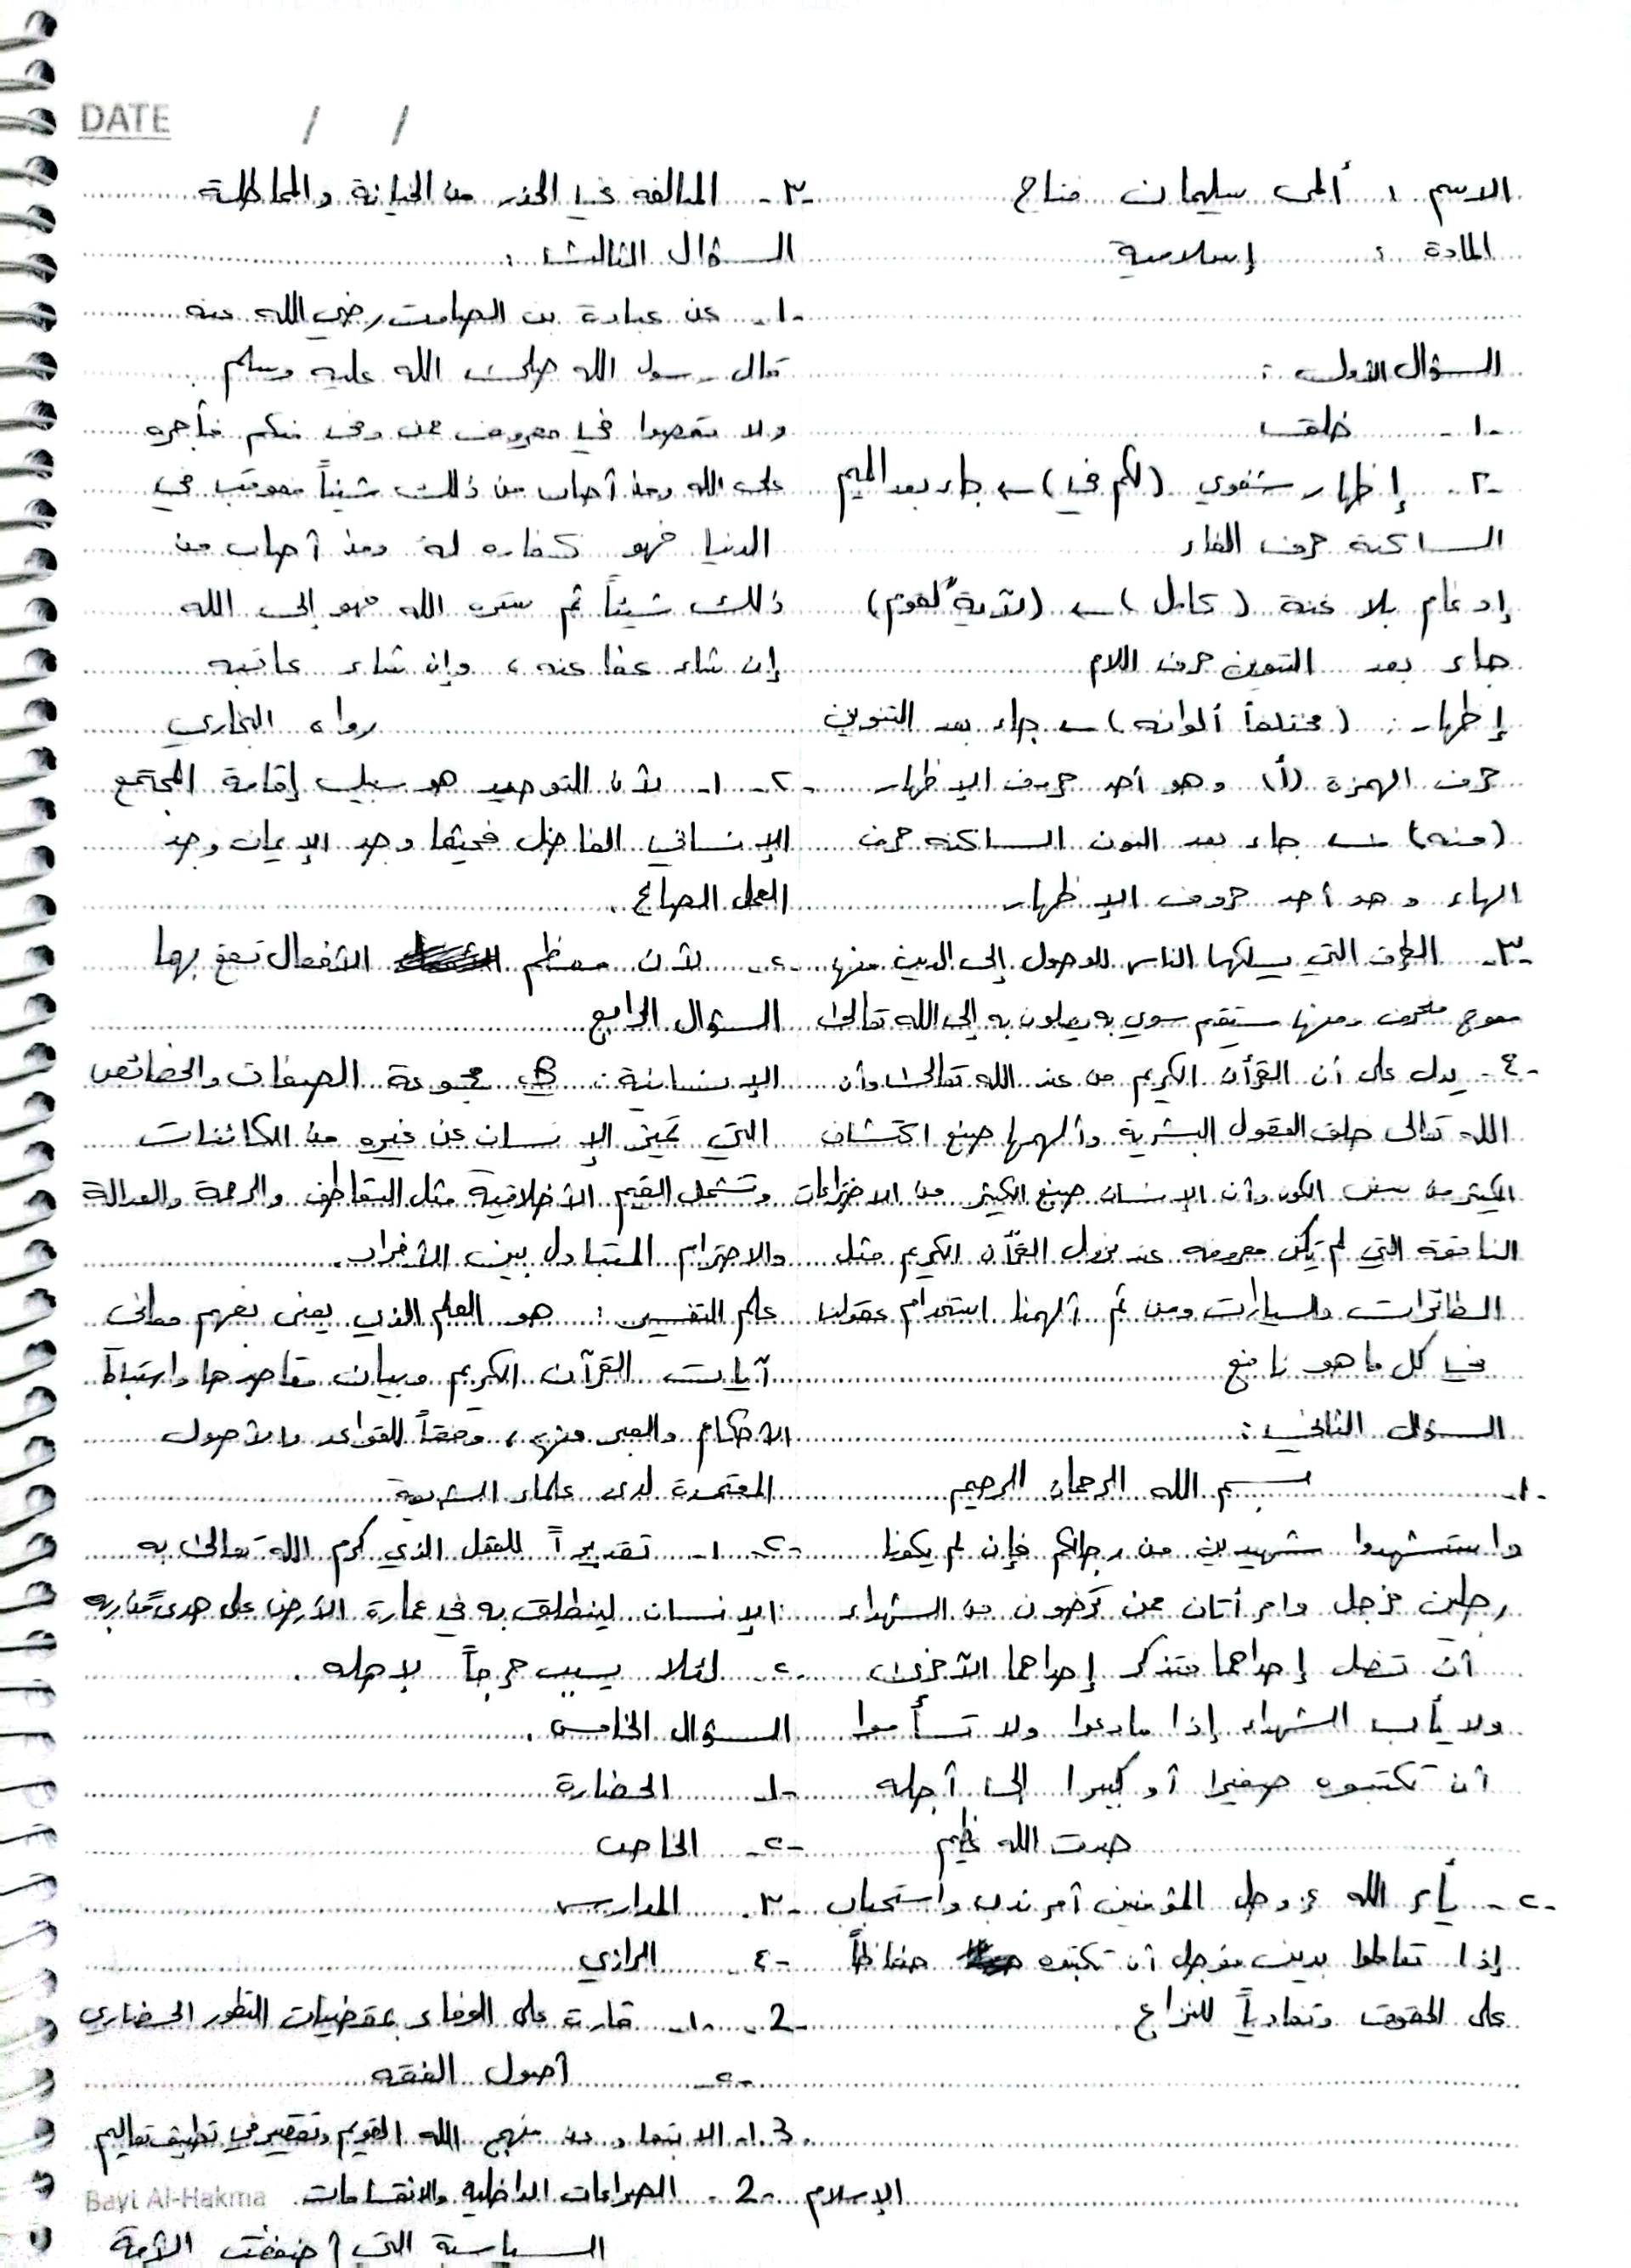 DATE / /
الاسم : ألمى سليمان مناح
المادة : إسلامية
السؤال الأول :
-١- خلقت
-٢- إظهار شفوي (لكم في) ← جاء بعد الميم
الساكنة حرف الفاء
إدغام بلا غنة (كامل) ← (لآيةً لقوم)
جاء بعد التنوين حرف اللام
إظهار : (مختلفاً ألوانه) ← جاء بعد التنوين
حرف الهمزة (أ) وهو أحد حروف الإظهار
(منه) ← جاء بعد النون الساكنة حرف
الهاء وهو أحد حروف الإظهار
-٣- الطرق التي يسلكها الناس للوصول إلى الدين منها
معوج منحرف ومنها مستقيم سوي به يصلون به إلى الله تعالى
-٤- يدل على أن القرآن الكريم من عند الله تعالى وأن
الله تعالى خلق العقول البشرية وألهمها صنع اكتشاف
الكثير من سنن الكون وأن الإنسان صنع الكثير من الاختراعات
النافعة التي لم تكن معروفه عند نزول القرآن الكريم مثل
الطائرات والسيارات ومن ثم ألهمنا استخدام عقولنا
في كل ما هو نافع
السؤال الثاني :
-١- بسم الله الرحمان الرحيم
واستشهدوا شهيدين من رجالكم فإن لم يكونا
رجلين فرجل وامرأتان ممن ترضون من الشهداء
أن تضل إحداهما فتذكر إحداهما الآخرى
ولا يأب الشهداء إذا ما دعوا ولا تسأموا
أن تكتبوه صغيرا أو كبيرا إلى أجله
صدق الله عظيم
-٢- يأمر الله عز وجل المؤمنين أمر ندب واستحباب
إذا تعاملوا بدين مؤجل أن تكتبوه حفاظاً
على الحقوق وتفادياً للنزاع
-٣- المبالغه في الحذر من الخيانة والمماطلة
السؤال الثالث :
-١- عن عبادة بن الصامت رضي الله عنه
قال رسول الله صلى الله عليه وسلم
ولا تعصوا في معروف فمن وفى منكم فأجره
على الله ومن أصاب من ذلك شيئاً فعوقب في
الدنيا فهو كفاره له ومن أصاب من
ذلك شيئاً ثم ستره الله فهو إلى الله
إن شاء عفا عنه ، وإن شاء عاقبه
رواه البخاري
-٢- ١- لأن التوحيد هو سبيل إقامة المجتمع
الإنساني الفاضل فحيثما وجد الإيمان وجد
العمل الصالح .
-٢- لأن معظم الأفعال تقع بهما
السؤال الرابع
الإنسانية : مجموعة الصفات والخصائص
التي تميز الإنسان عن غيره من الكائنات
وتشمل القيم الأخلاقية مثل التعاطف والرحمة والعدالة
والاحترام المتبادل بين الأفراد .
علم التفسير : هو العلم الذي يعنى بفهم معاني
آيات القرآن الكريم وبيان مقاصدها واستنباط
الأحكام والعبر منها ، وفقاً للقواعد والأصول
المعتمدة لدى علماء الشريعة
-٢- ١- تقديراً للعقل الذي كرم الله تعالى به
الإنسان لينطلق به في عمارة الأرض على هدىً من ربه
-٢- لئلا يسبب حرجاً لأهله .
السؤال الخامس .
-١- الحضارة
-٢- الخاص
-٣- المدارس
-٤- الرازي
-2- ١- قادرة على الوفاء بمقتضيات التطور الحضاري
-٢- أصول الفقه
3. ١- الابتعاد عن منهج الله القويم وتقصير في تطبيق تعاليم
الإسلام -2- الصراعات الداخليه والانقسامات
السياسية التي أضعفت الأمة
Bayt Al-Hakma